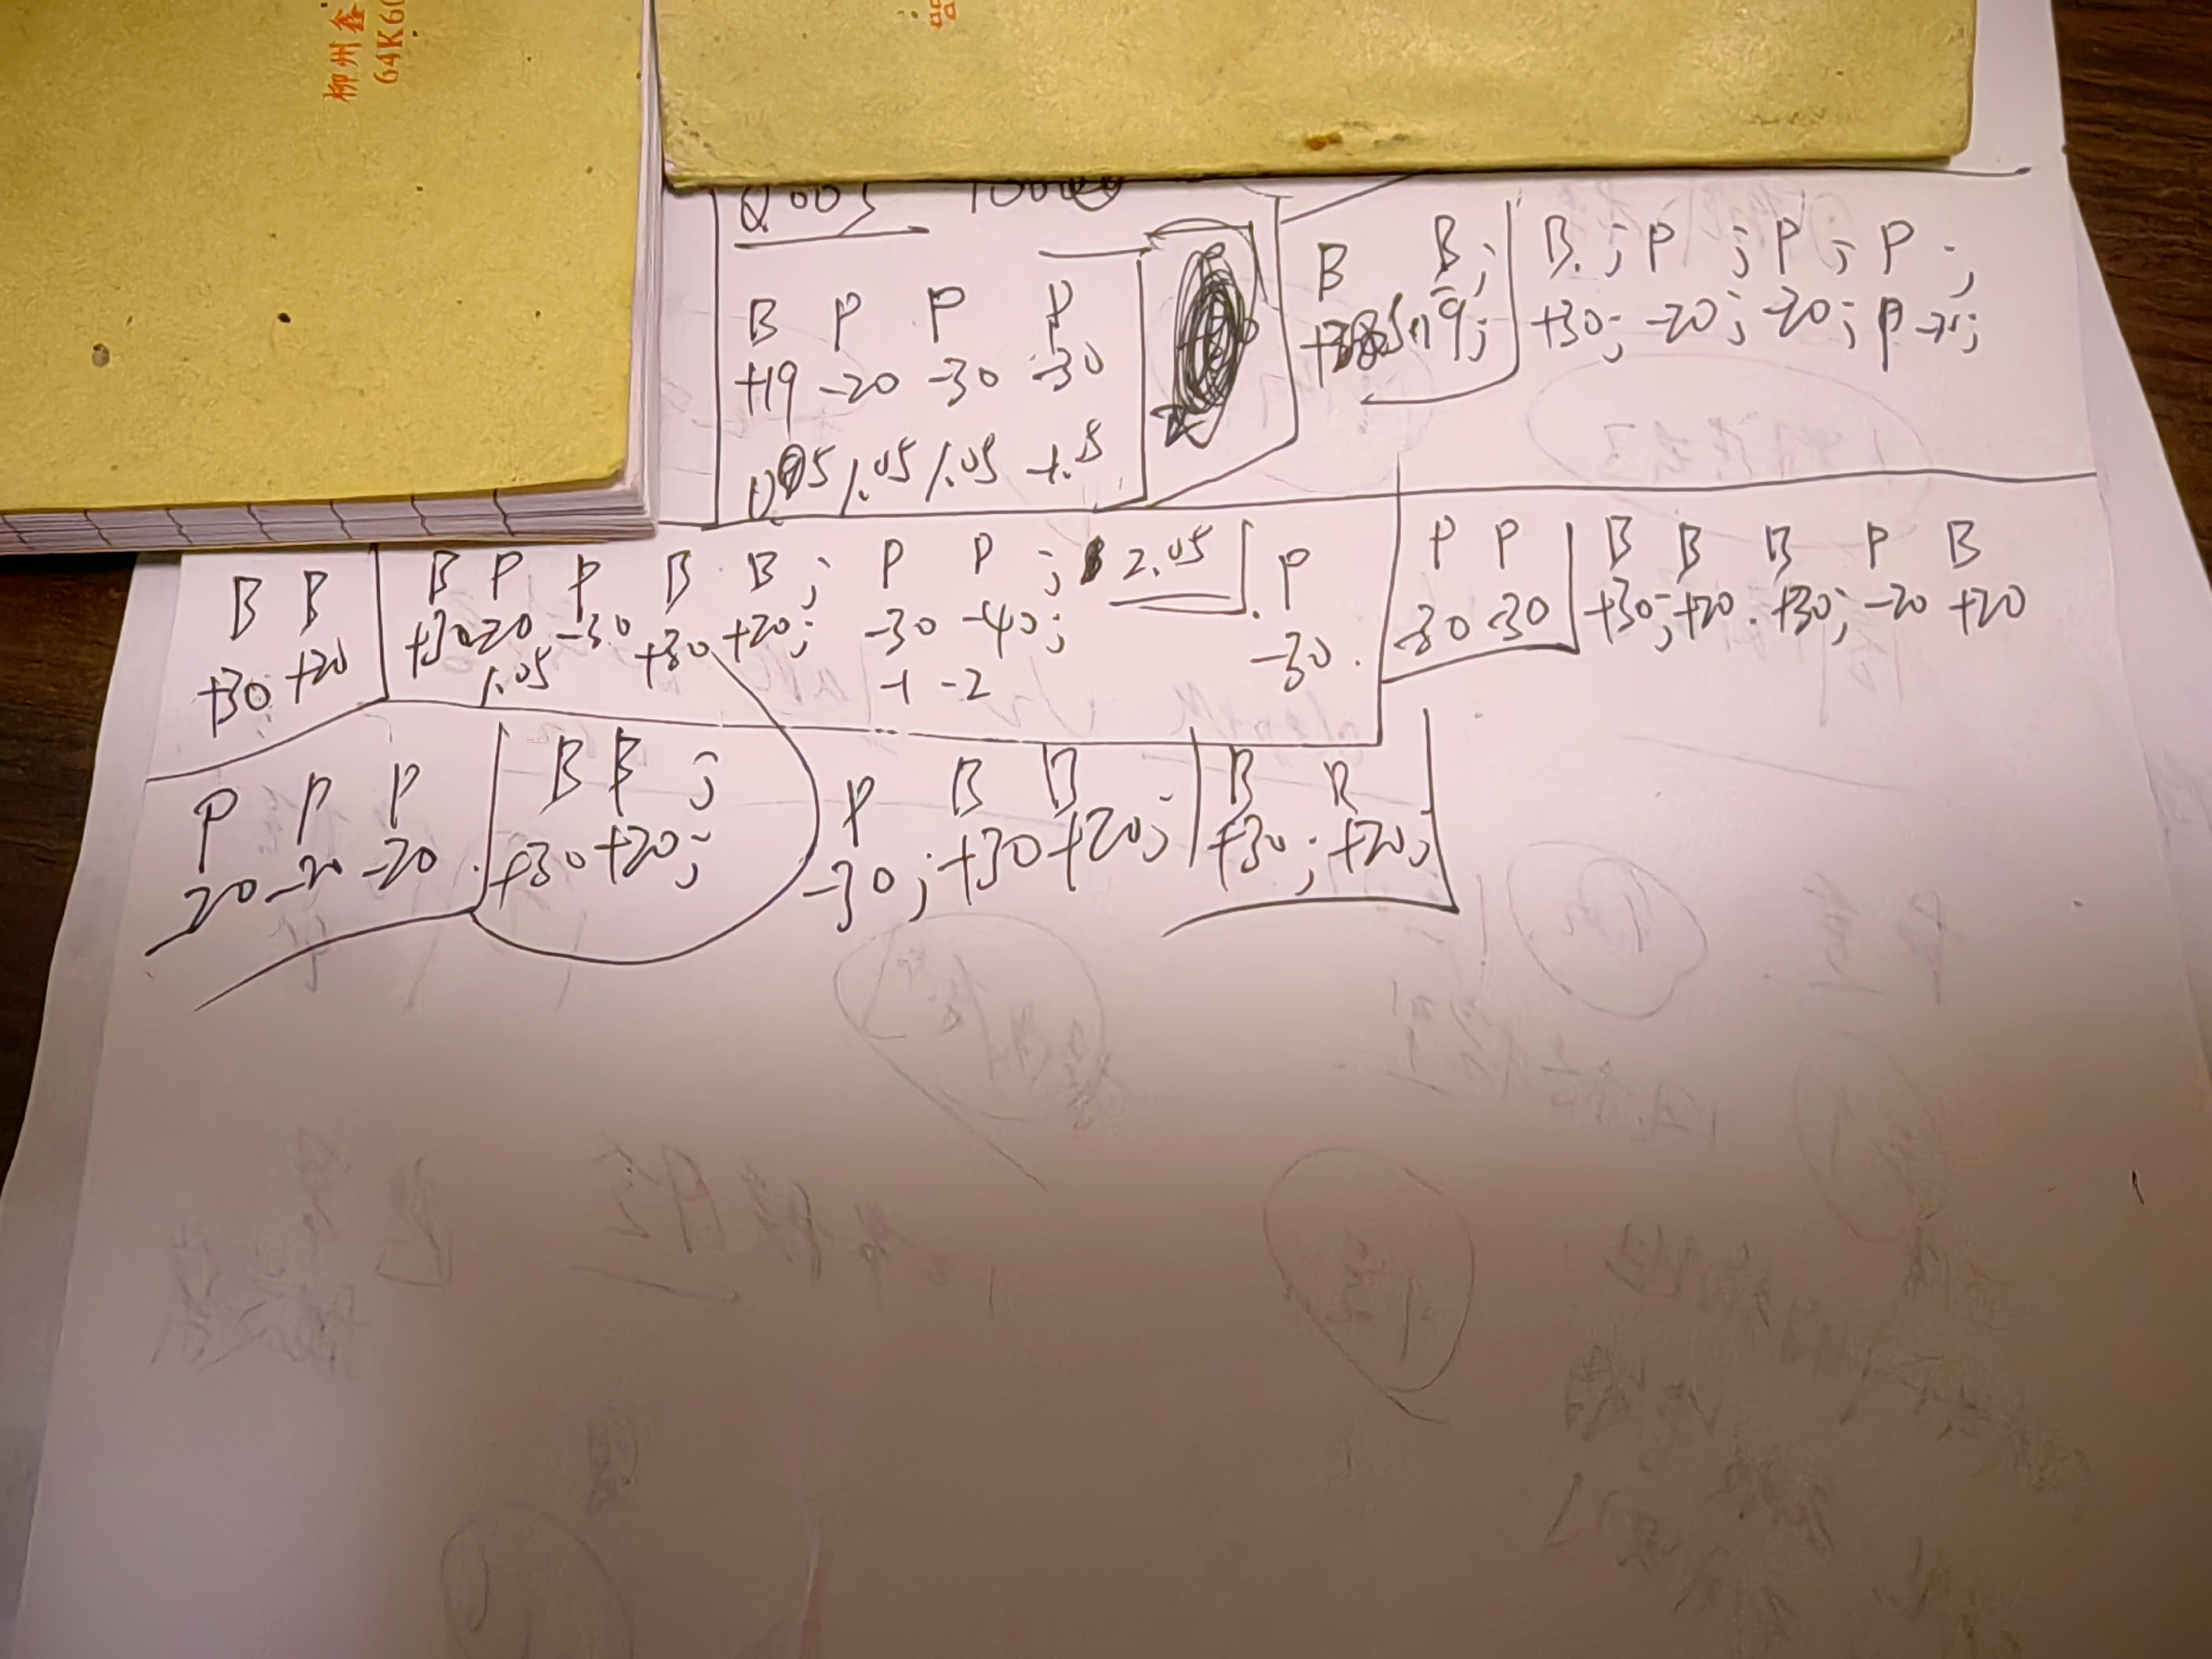 柳州鑫
64K60
Q003 10000
B P P P
+19 -20 -30 -30
1.05 1.05 -1.5
B B; B.; P; P; P;
+19; +30; -20; -20; P
B B
+30 +20
B P P B B; P P; 2.05 P
+30 -20 -30 +30 +20; -30 -40; -30.
1.05 -1 -2
P P B B B P B
-30 -30 +30; +20. +30; -20 +20
P P P B B; P B B B B
20 -20 -20. +30 +20; -30; +30 +20; +30; +20;